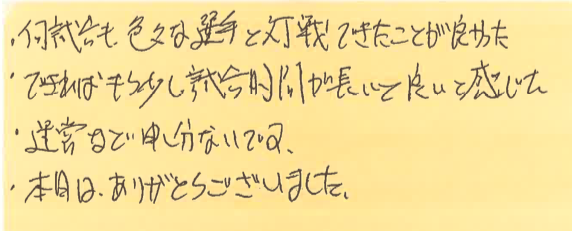 ・何試合も色々な選手と対戦できたことが良かった
・できればもう少し試合時間が長いと良いと感じた
・運営など申し分ないです。
・本日は、ありがとうございました。